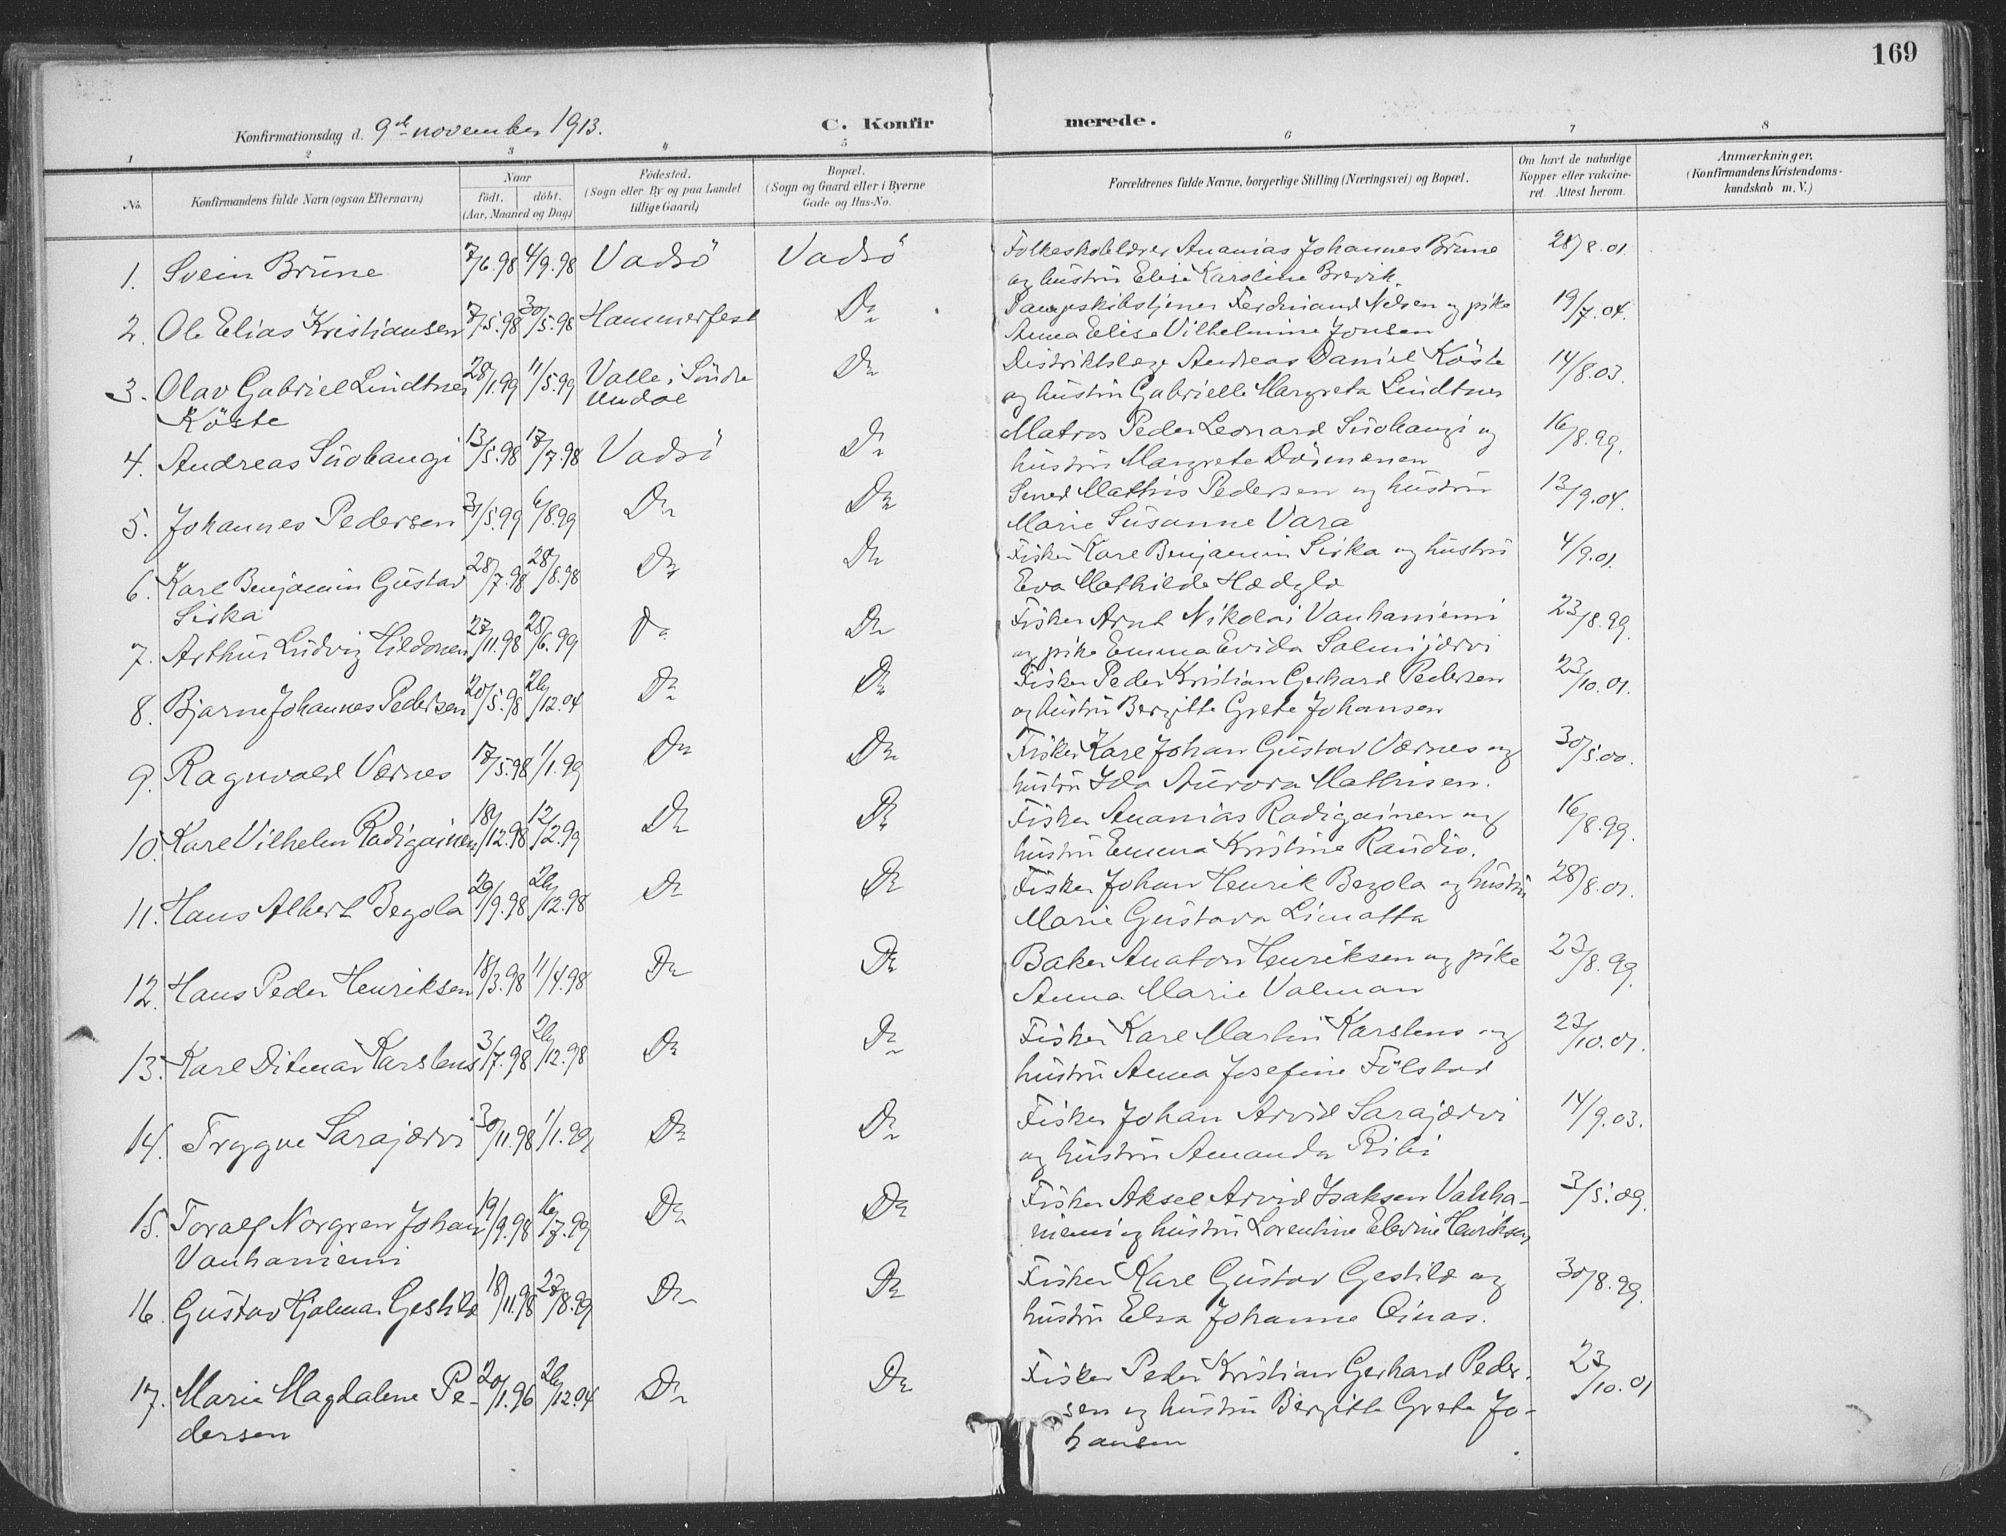 169
Konfirmationsdag d. 9de november 1913.
C. Konfirmerede.
1 2 3 4 5 6 7 8
No.
Konfirmandens fulde Navn (ogsaa Efternavn)
Naar
födt. döbt.
(Aar, Maaned og Dag)
Födested.
(Sogn eller By og paa Landet
tillige Gaard)
Bopæl.
(Sogn og Gaard eller i Byerne
Gade og Hus-No.
Forældrenes fulde Navne, borgerlige Stilling (Næringsvei) og Bopæl.
Om havt de naturlige
Kopper eller vakcine-
ret. Attest herom.
Anmærkninger.
(Konfirmandens Kristendoms-
kundskab m. V.)
1. Svein Brune 7/6.98 4/9.98 Vadsö Vadsö Folkeskolelærer Ananias Johannes Brune 28/8.01.
og hustru Elise Karoline Brevik.
2. Ole Elias Kristiansen 7/5.98 30/5.98 Hammerfest Do Dampskibstjener Ferdinand Nilsen og pike 19/7.04.
Anna Elise Vilhelmine Jonsen
3. Olav Gabriel Lindtner 28/1.99 11/5.99 Valle i Söndre Do Distriktslæge Andreas Daniel Köste 14/8.03.
Köste Undal og hustru Gabrielle Margreta Lindtner
4. Andreas Suohangi 13/5.98 17/7.98 Vadsö Do Matros Peder Leonard Suohangi og 16/8.99.
hustru Margrete
5. Johannes Pedersen 3/5.99 6/8.99 Do Do Smed Mathis Pedersen og hustru 13/9.04.
Marie Susanne Vara
6. Karl Benjamin Gustav 28/7.98 28/8.98 Do Do Fisker Karl Benjamin Sirka og hustru 4/9.01.
Sirka Eva Mathilde
7. Arthur Ludvig Hildonen 27/11.98 25/6.99 Do Do Fisker Arnt Nikolai Vanhaniemi 23/8.99.
og pike Emma Evida Salmijærvi
8. Bjarne Johannes Pedersen 20/5.98 26/12.04 Do Do Fisker Peder Kristian Gerhard Pedersen 23/10.01.
og hustru Bergitte Grete Johansen
9. Ragnvald Værnes 17/5.98 1/1.99 Do Do Fisker Karl Johan Gustav Værnes og 30/5.00.
hustru Ida Aurora Mathisen.
10. Karl Vilhelm Radigainen 18/12.98 12/2.99 Do Do Fisker Ananias Radigainen og 16/8.99.
hustru Emma Kristine Raudio.
11. Hans Albert Begola 29/9.98 26/12.98 Do Do Fisker Johan Henrik Begola og hustru 28/8.01.
Marie Gustava Limatta
12. Hans Peder Henriksen 18/3.98 11/4.98 Do Do Baker Anaton Henriksen og pike 23/8.99.
Anna Marie Valman
13. Karl Ditmar Karstens 3/7.98 26/12.98 Do Do Fisker Karl Martin Karstens og 23/10.01.
hustru Anna Josefine Fölstad
14. Trygve Sarajærvi 30/11.98 1/1.99 Do Do Fisker Johan Arvid Sarajærvi 14/9.03.
og hustru Amanda Ribi
15. Toralf Norgren Johan 19/9.98 16/7.99 Do Do Fisker Aksel Arvid Isaksen Vanha- 3/5.09.
Vanhaniemi niemi og hustru Lorentine Elevine Henriksen
16. Gustav Hjalmar Gestild 18/11.98 27/8.99 Do Do Fisker Karl Gustav Gestild og 30/8.99.
hustru Elsa Johanne Oinas.
17. Marie Magdalene Pe- 20/1.96 26/12.04 Do Do Fisker Peder Kristian Gerhard Peder- 23/10.01
dersen sen og hustru Bergitte Grete Jo-
hansen